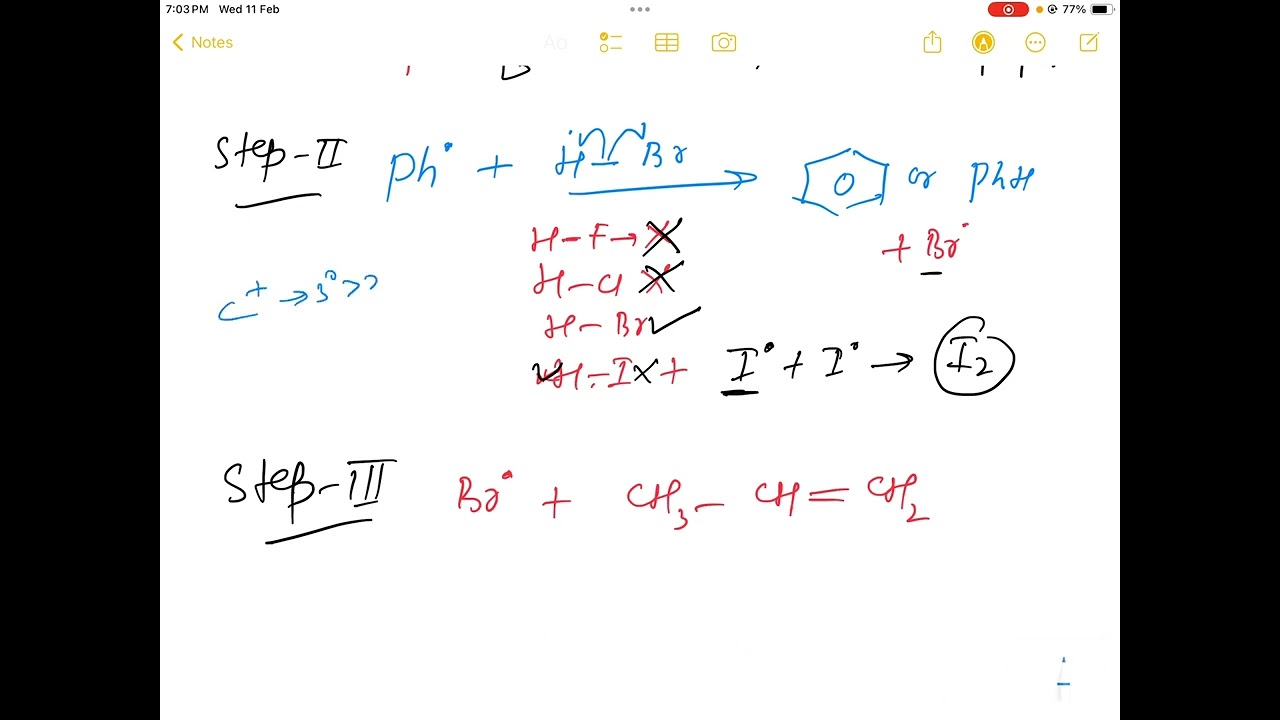 7:03 PM Wed 11 Feb 77%
Notes
Aa
Step-II Ph• + H–Br → or PhH
+ Br•
H–F→X
H–Cl X
C⁺ → 3° >>
H–Br✓
✓H–I X + I• + I• → I₂
Step-III Br• + CH₃– CH=CH₂